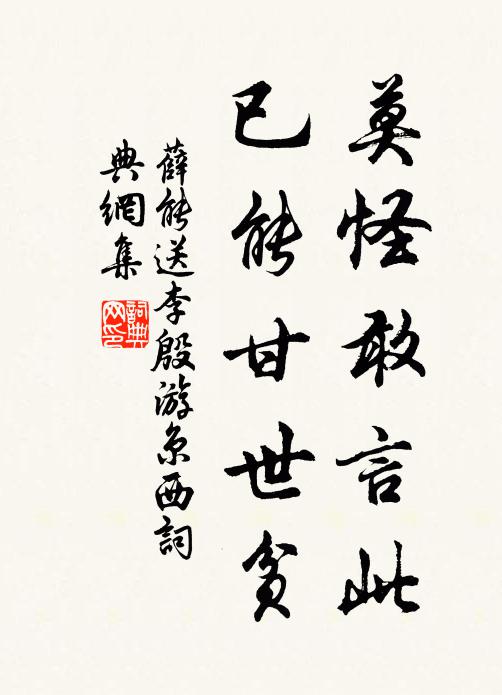 莫怪敢言此
已能甘世貧
薛能送李殷游京西詞
典網集
詞典
网印